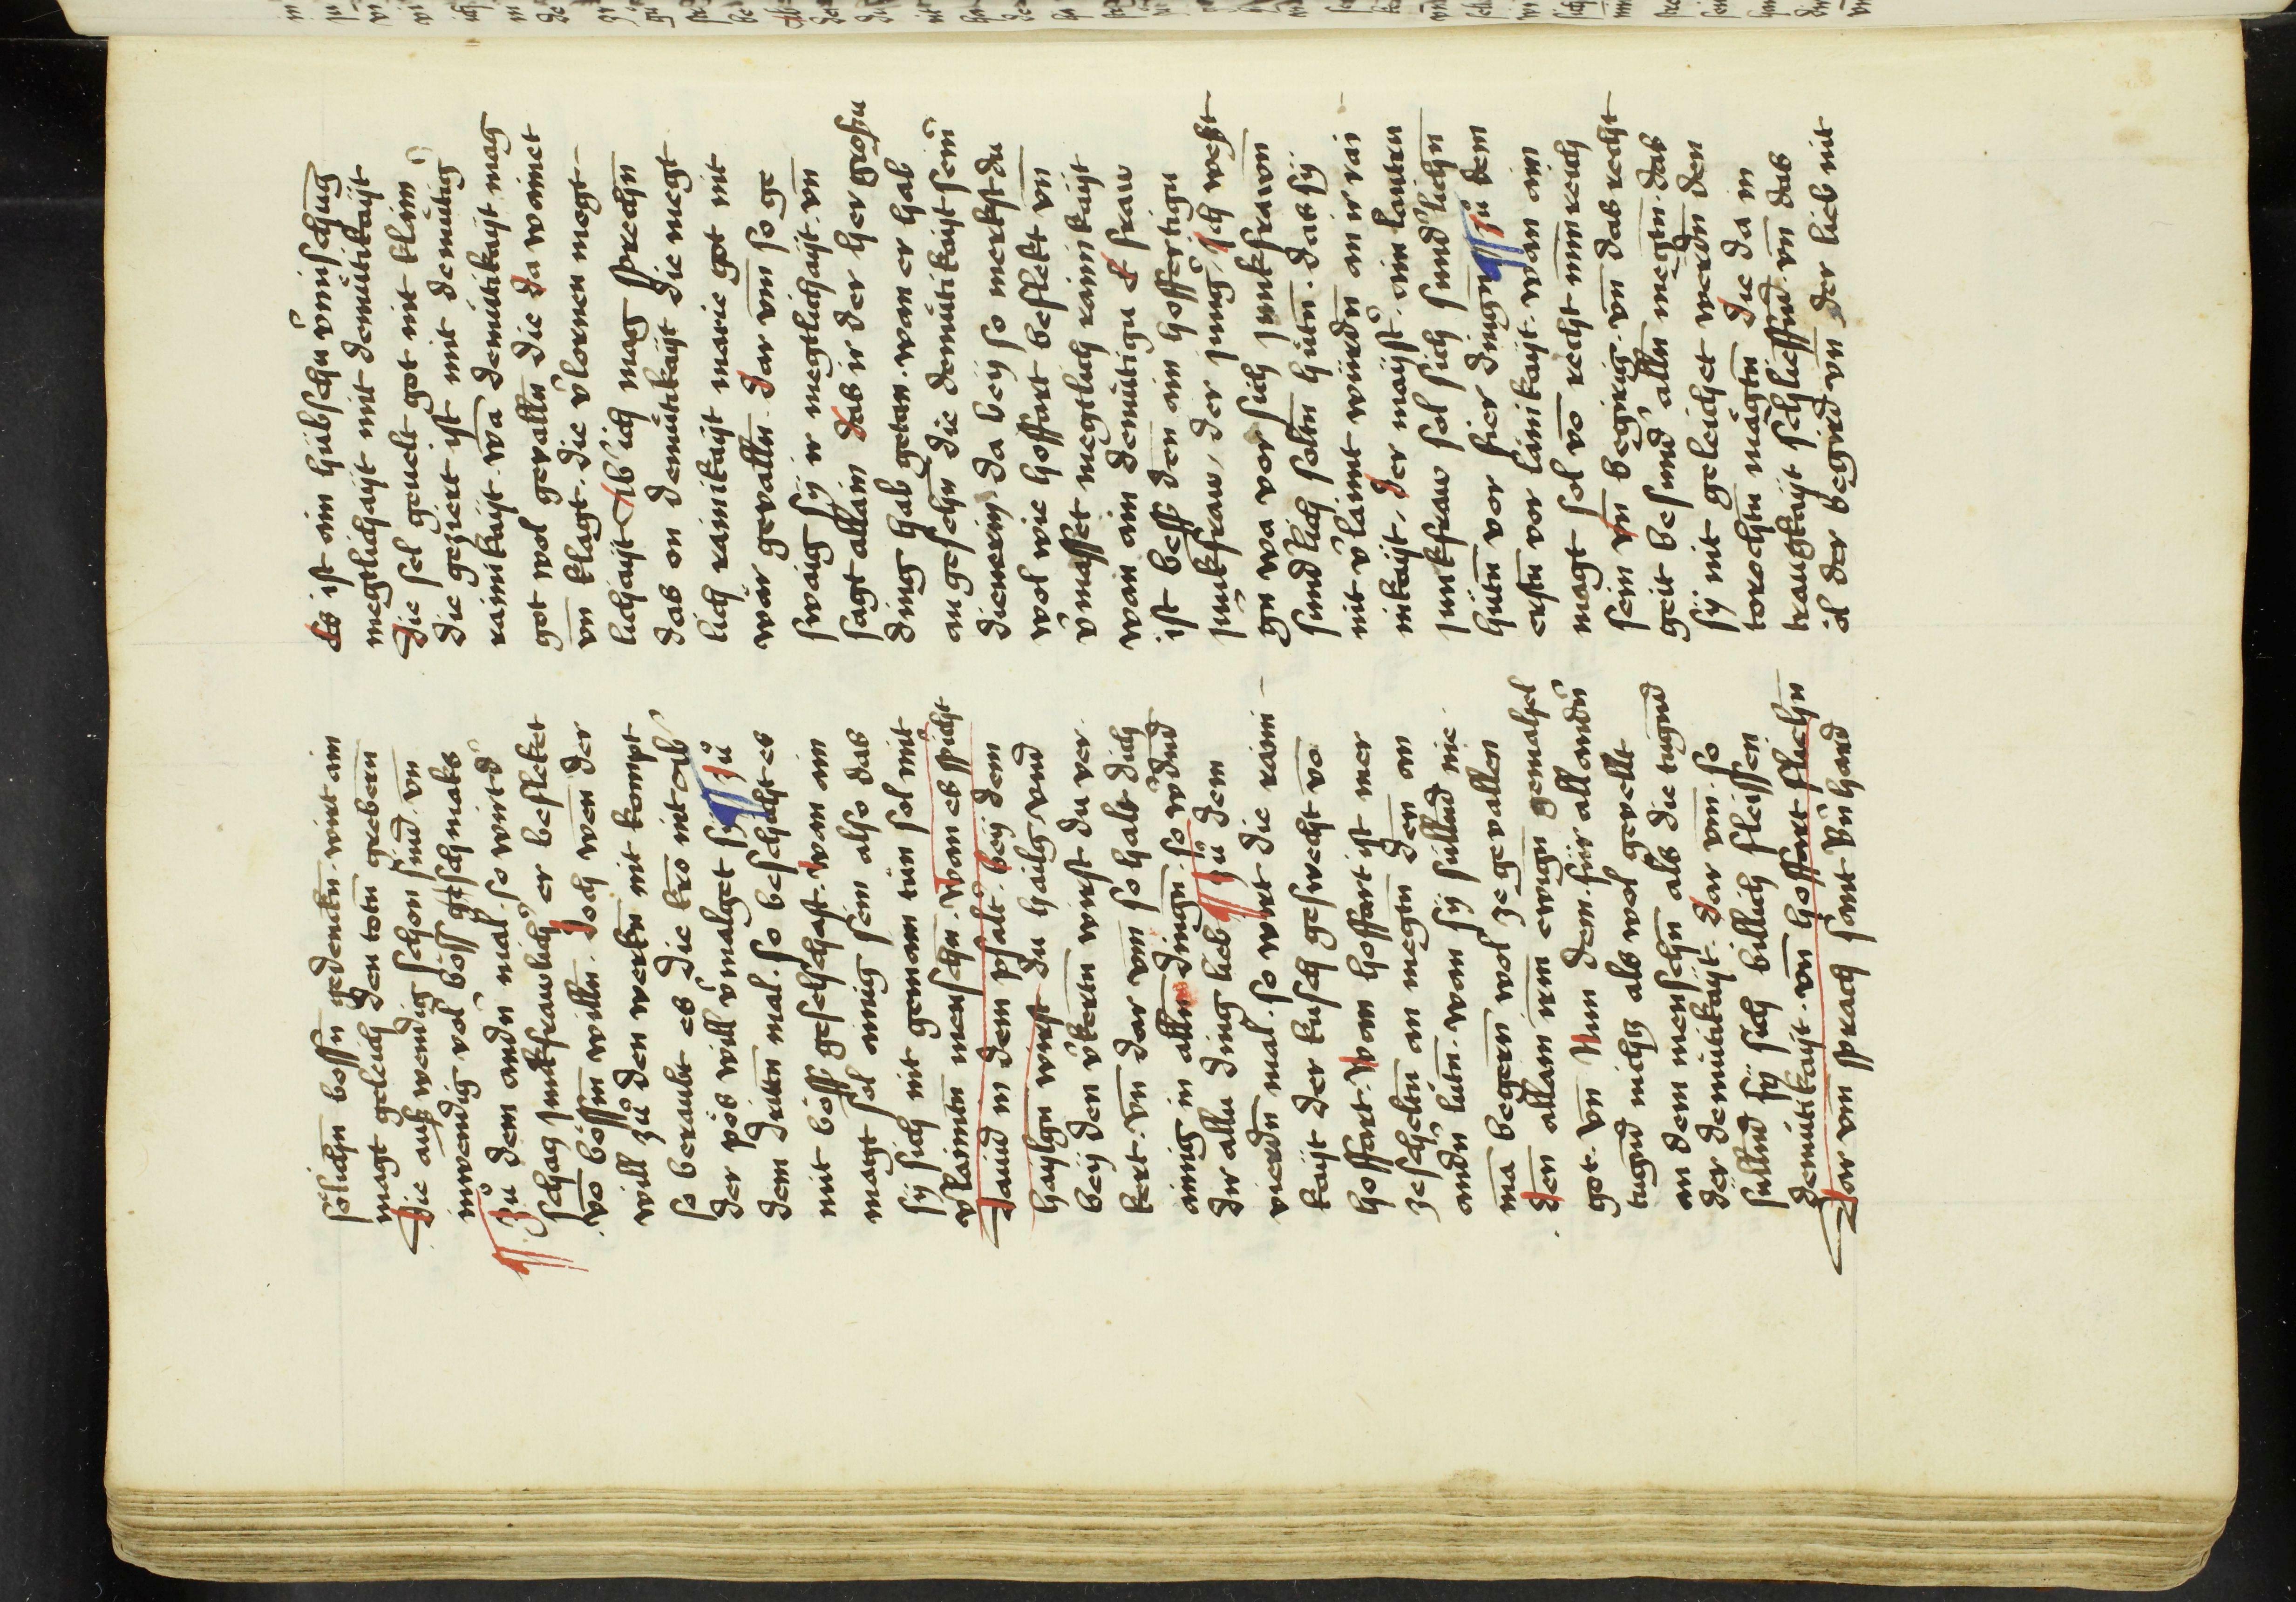 sölichen bossn gedenckn. wirt ain
magt geleich den totn grebern
Die auß wendig schon sind. vn̄
inwendig vol böss gesmaks
¶ Zů dem andn mal. so wirt d
schag junkfrawlich er beflecket
vō bössm willn. Doch wen der
will zů den werkn nit kompt
so beraubt es die kro nit ob
der pös will vmalget sy ¶ Zů
dem drittn mal. so beschächt es
mit böss geselschaft. wan ain
magt sol ainig sein also das
sy sich nit gemain tün sol mit
vlaimtn menschn. Won es spricht
Dauid in dem psalt. bey dem
haylgn wirst du hailg vnd
bey den vkertn wirst du ver
kert. vn̄ dar vm so halt dich
ainig in alln dingn. so wdnd
dir allu ding lieb ¶ Zü dem
vierdn mal. so wirt die raini
kayt der kusch geswecht vō
hoffart. Won hoffart ist mer
ze scheltn an megtn den an
andn lütn. won sy sülnd nie
ma begern wol ze gevallen
den allain irem ewign gemahel
got. vn̄ Nun dem. für all andn
tugnd nichtz als wol gevellt
an dem menschn als die tugnd
der demütikayt. Dar vm. so
sullnd sy sich billich fleissen
demütikayt. vn̄ hoffart fliehn
Dar vm sprach sant Bnhard
Es ist ain hübschu vmischūg
megtlichayt mit demütikayt
Die sel gevelt got nit klain
die geziert ist mit demütig
rainikayt. wa demütikayt mag
got wol gevalln die da wainet
vn̄ klagt. die vlornen megt
lichayt Ob ich mag sprechn
das on demütikayt die megt
lich rainikayt marie got nit
wär gevalln. Dar vm so ge
swaig sy ir megtlichayt. vn̄
sagt allain das ir der her großu
ding hab getan. wan er hab
an gesehn die demütikayt seinr
dienerin. da bey so merkst du
wol wie hoffart beflekt vn̄
vmasset megtlich rainikayt
won ain demütigu E fraw
ist bess den ain hoffertigu
junkfraw, der jung, sich weßt
gn wa vor sich junkfrawn
sundlich soltn hütn. das sy
nit vlaimt würdn an ir rai
nikayt, der mayst. ain lautru
junkfraw sol sich sundlichn
hütn vor fier dingn ¶ Zů dem
erstn vor länikayt. wan ain
magt sol vō recht inn reich
sein vn̄ begirig. vn̄ das recht
geit besund alln megtn. das
sy nit geleichet werdn den
torochtn mägtn die da in
traugkayt schlieffnd. vn̄ das
öl der begird vn̄ der lieb nit